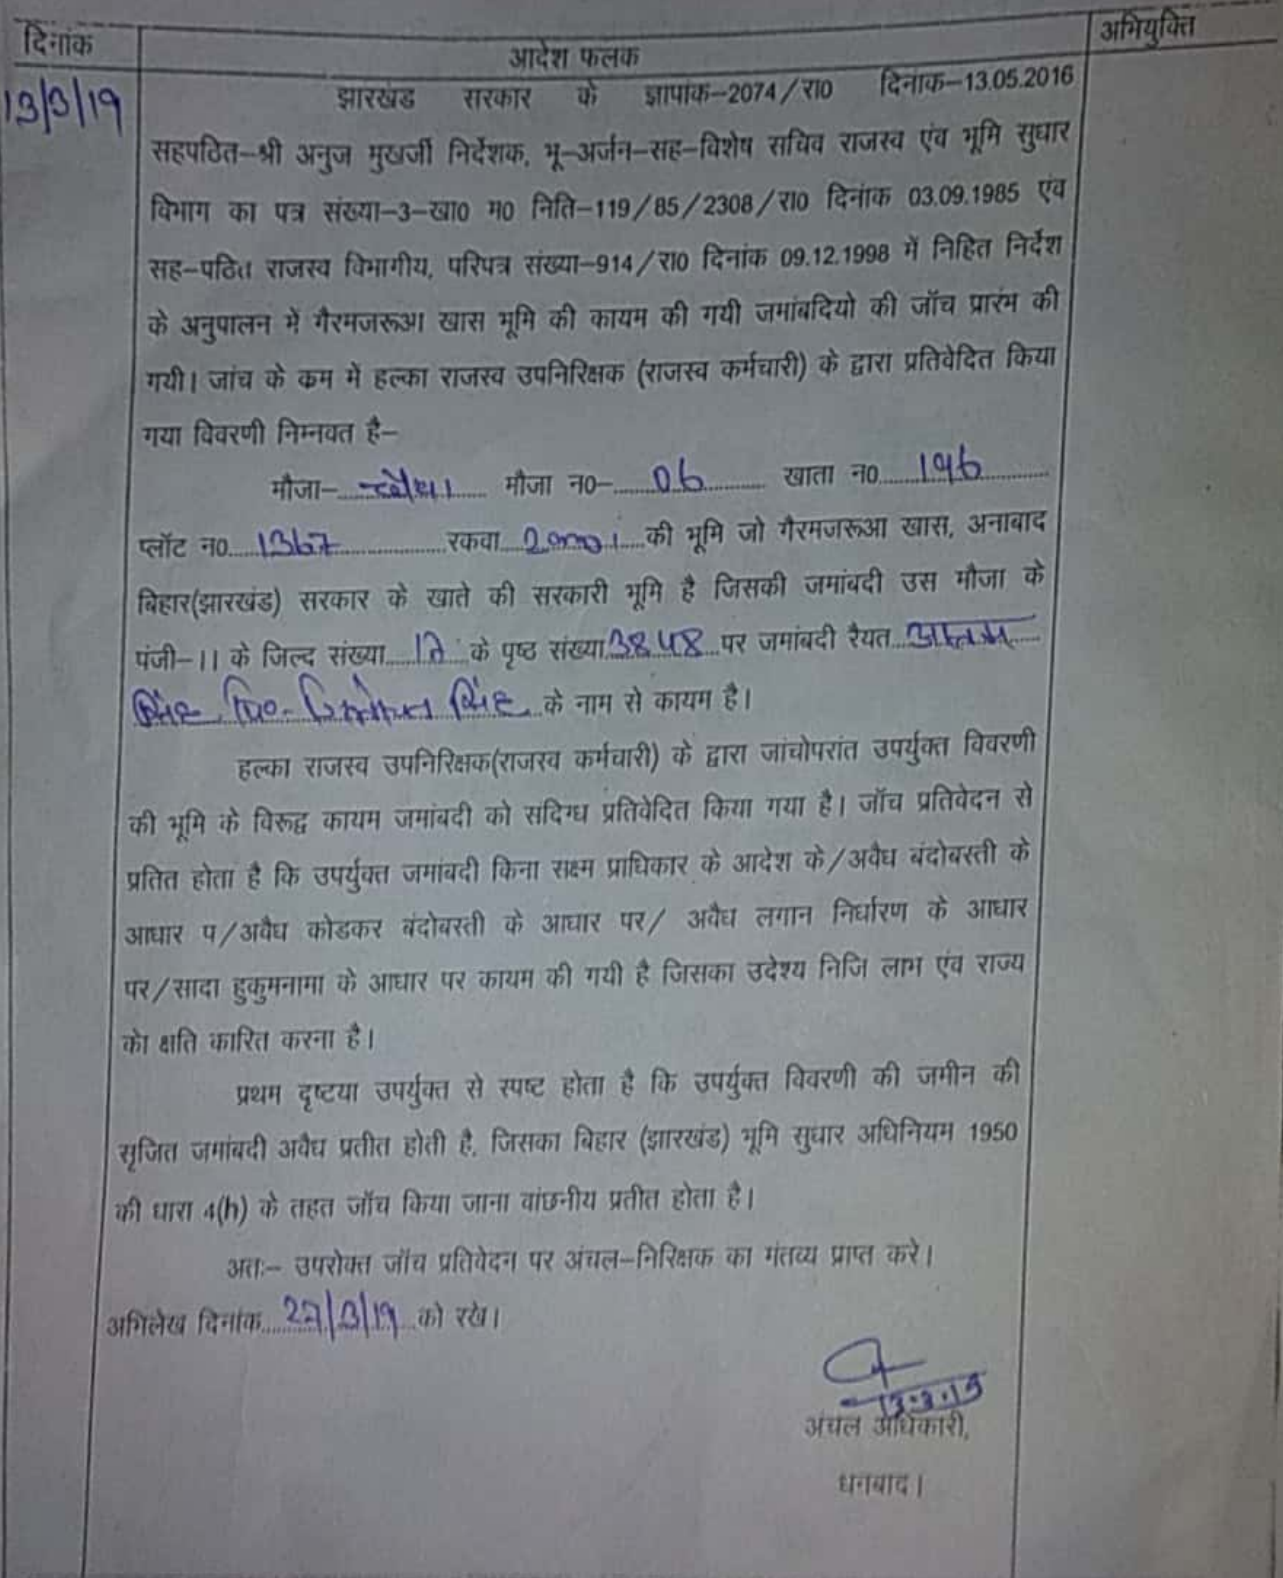 दिनांक
आदेश फलक
अभियुक्ति
13/3/19
झारखंड सरकार के ज्ञापांक-2074/रा0 दिनांक-13.05.2016
सहपठित-श्री अनुज मुखर्जी निर्देशक, भू-अर्जन-सह-विशेष सचिव राजस्व एंव भूमि सुधार
विभाग का पत्र संख्या-3-खा0 म0 निति-119/85/2308/रा0 दिनांक 03.09.1985 एंव
सह-पठित राजस्व विभागीय, परिपत्र संख्या-914/रा0 दिनांक 09.12.1998 में निहित निर्देश
के अनुपालन में गैरमजरूआ खास भूमि की कायम की गयी जमांबदियो की जॉच प्रारंभ की
गयी। जांच के कम में हल्का राजस्व उपनिरिक्षक (राजस्व कर्मचारी) के द्वारा प्रतिवेदित किया
गया विवरणी निम्नवत है-
मौजा- मौजा न0- 06 खाता न0 196
प्लॉट न0 1367 रकवा की भूमि जो गैरमजरूआ खास, अनाबाद
बिहार(झारखंड) सरकार के खाते की सरकारी भूमि है जिसकी जमांबदी उस मौजा के
पंजी-11 के जिल्द संख्या के पृष्ठ संख्या 3848 पर जमांबदी रैयत
सिंह पि0- सिंह के नाम से कायम है।
हल्का राजस्व उपनिरिक्षक(राजस्व कर्मचारी) के द्वारा जांचोपरांत उपर्युक्त विवरणी
की भूमि के विरूद्व कायम जमांबदी को सदिग्ध प्रतिवेदित किया गया है। जॉच प्रतिवेदन से
प्रतित होता है कि उपर्युक्त जमांबदी किना सक्ष्म प्राधिकार के आदेश के/अवैध बंदोबस्ती के
आधार प/अवैध कोडकर बंदोबस्ती के आधार पर/ अवैध लगान निर्धारण के आधार
पर/सादा हुकुमनामा के आधार पर कायम की गयी है जिसका उदेश्य निजि लाभ एंव राज्य
को क्षति कारित करना है।
प्रथम दृष्टया उपर्युक्त से स्पष्ट होता है कि उपर्युक्त विवरणी की जमीन की
सृजित जमांबदी अवैध प्रतीत होती है, जिसका बिहार (झारखंड) भूमि सुधार अधिनियम 1950
की धारा 4(h) के तहत जॉच किया जाना वांछनीय प्रतीत होता है।
अतः- उपरोक्त जॉच प्रतिवेदन पर अंचल-निरिक्षक का मंतव्य प्राप्त करे।
अभिलेख दिनांक 27/3/19 को रखे।
13.3.19
अंचल अधिकारी,
धनबाद।